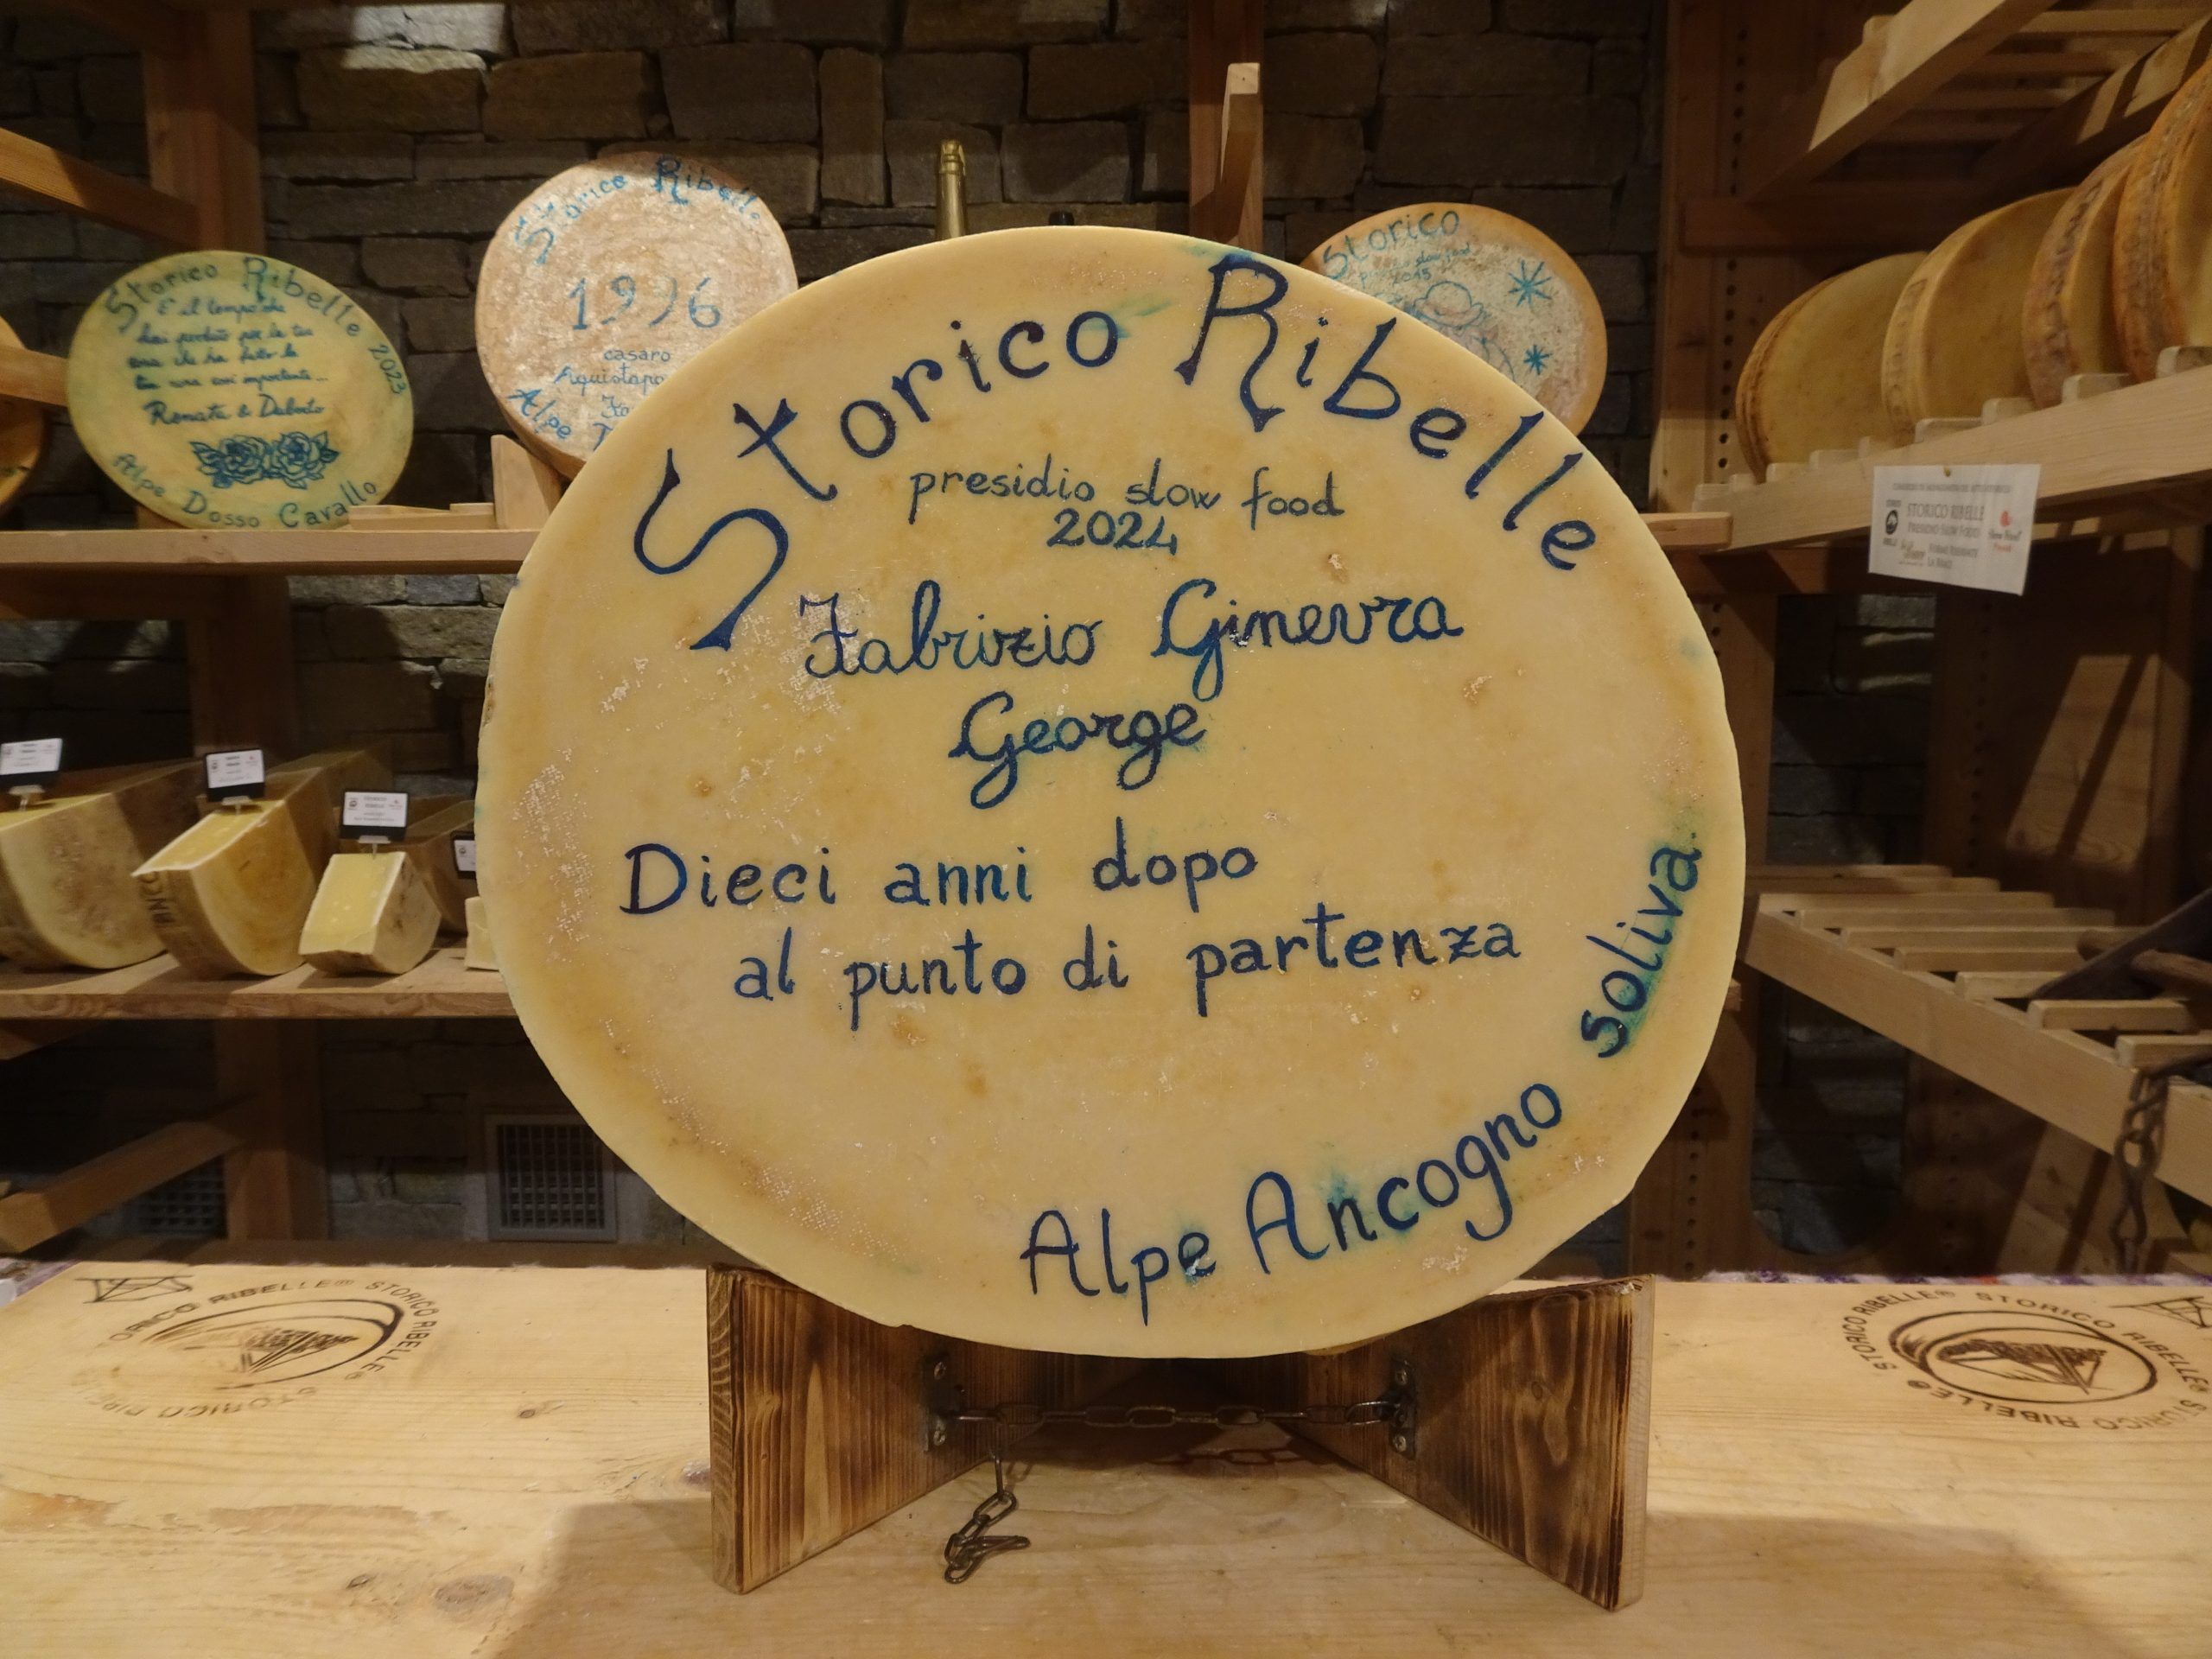 Storico Ribelle
presidio slow food
2024
Fabrizio Ginevra
George
Dieci anni dopo
al punto di partenza
Alpe Ancogno soliva.
Storico Ribelle 2023
E il tempo che
hai perduto per la tua
rosa che ha fatto la
tua rosa così importante...
Renata &
Alpe Dosso Cavallo
Storico Ribelle
1996
casaro
Alpe
Storico
presidio slow food
2015
STORICO RIBELLE
PRESIDIO SLOW FOOD
Slow Food
STORICO
RIBELLE
STORICO RIBELLE® STORICO RIBELLE
STORICO RIBELLE® STORICO RIBELLE